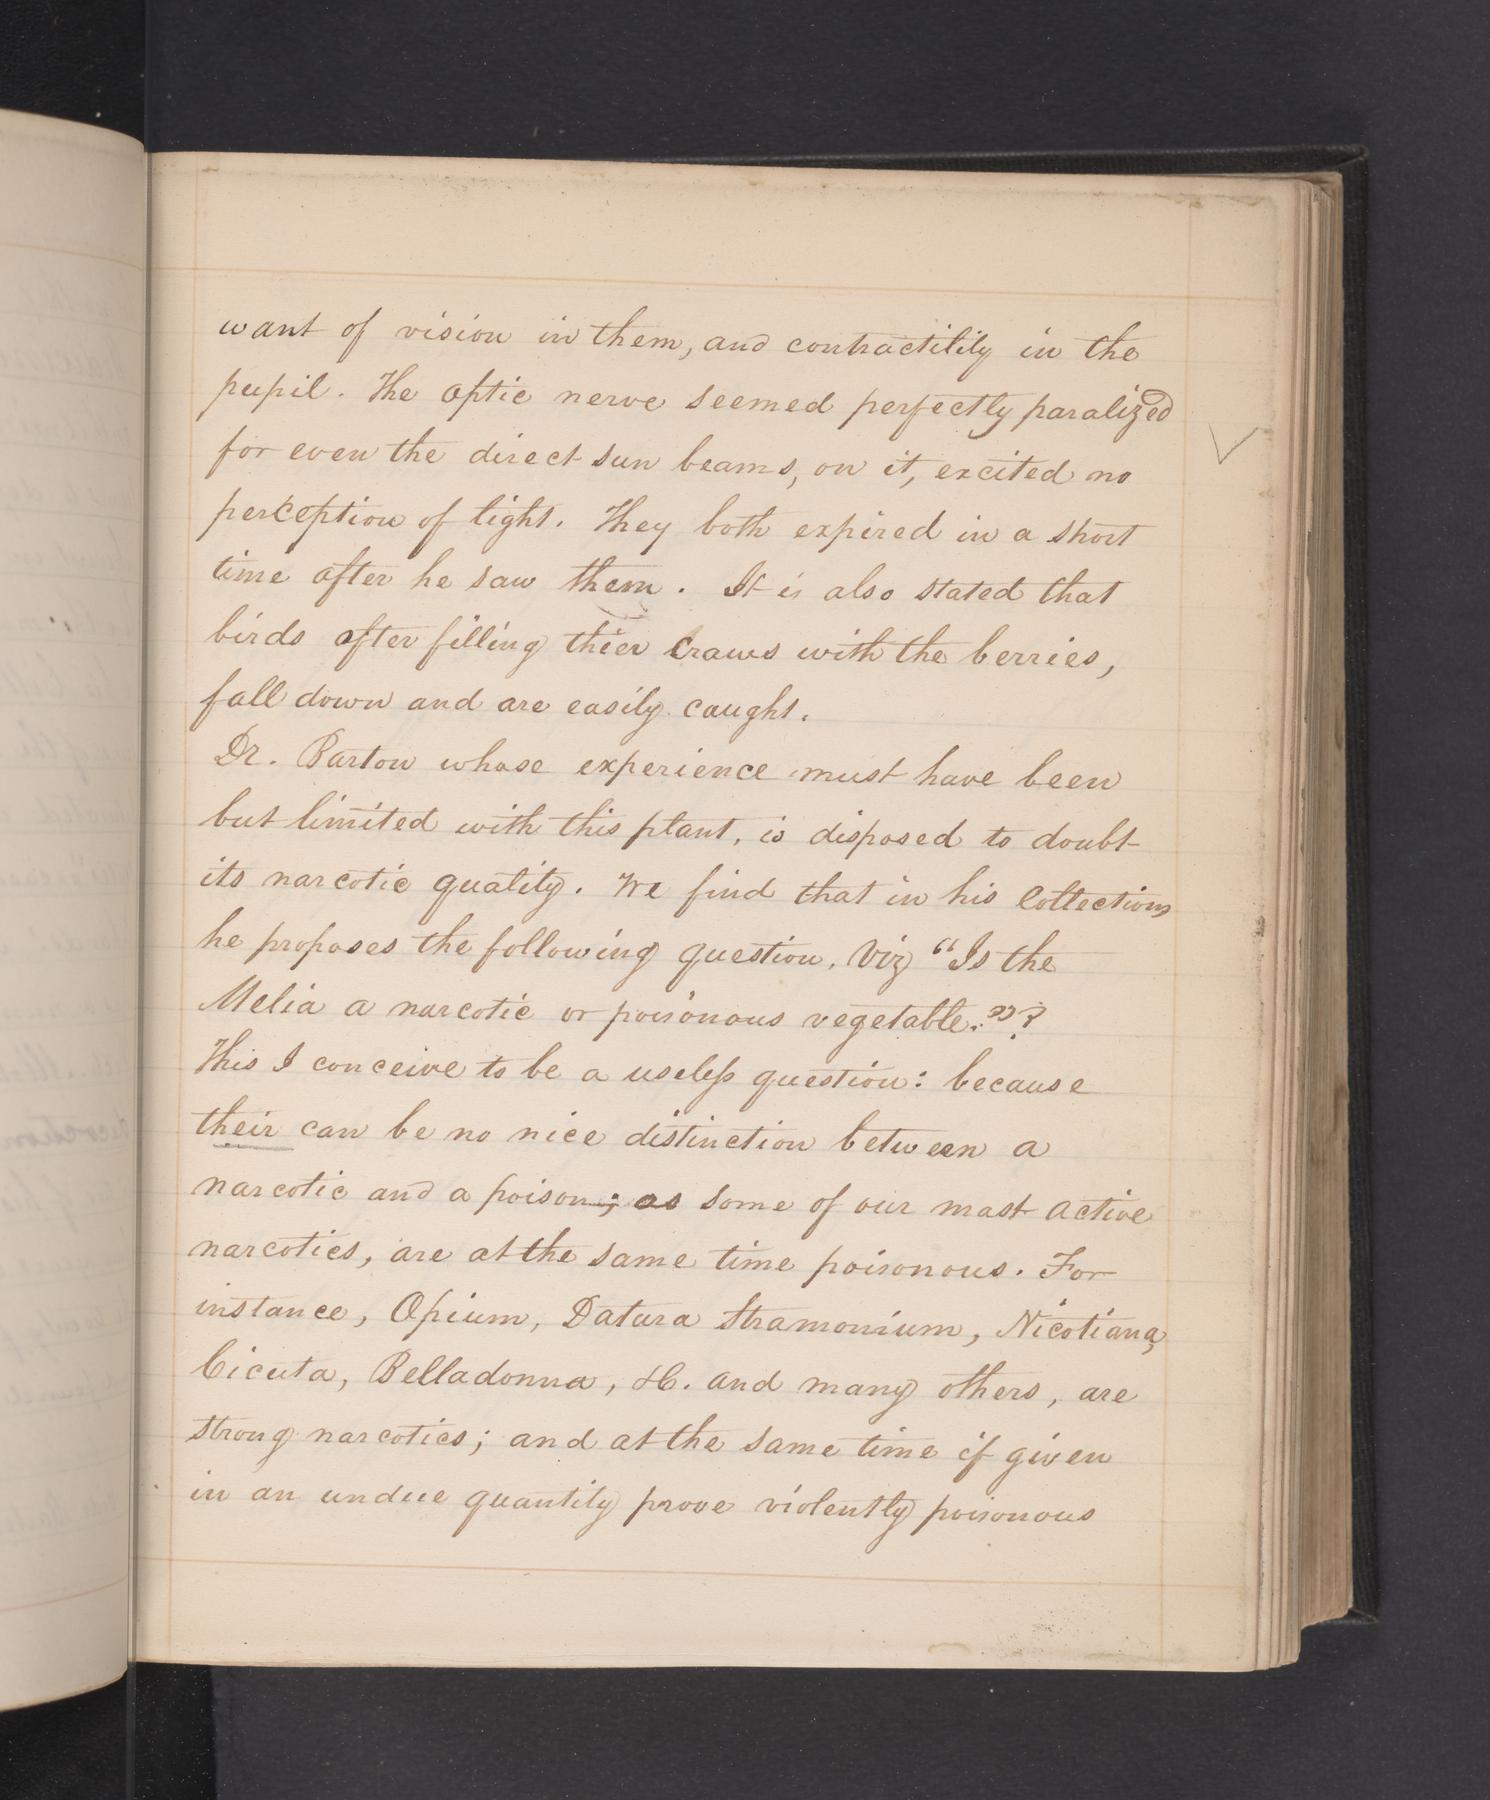 want of vision in them, and contractility in the
pupil. The optic nerve seemed perfectly paralized
for even the direct sun beams, on it, excited no
perception of light. They both expired in a short
time after he saw them. It is also stated that
birds after filling thier craws with the berries,
fall down and are easily caught.
Dr. Barton whose experience must have been
but limited with this plant, is disposed to doubt
its narcotic quality. We find that in his Collections
he proposes the following question, Viz "Is the
Melia a narcotic or poisonous vegetable."?
This I conceive to be a useless question: because
their can be no nice distinction between a
narcotic and a poison; as some of our most active
narcotics, are at the same time poisonous. For
instance, Opium, Datura Stramonium, Nicotiana,
Cicuta, Belladonna, &c. and many others, are
strong narcotics; and at the same time if given
in an undue quantity prove violently poisonous